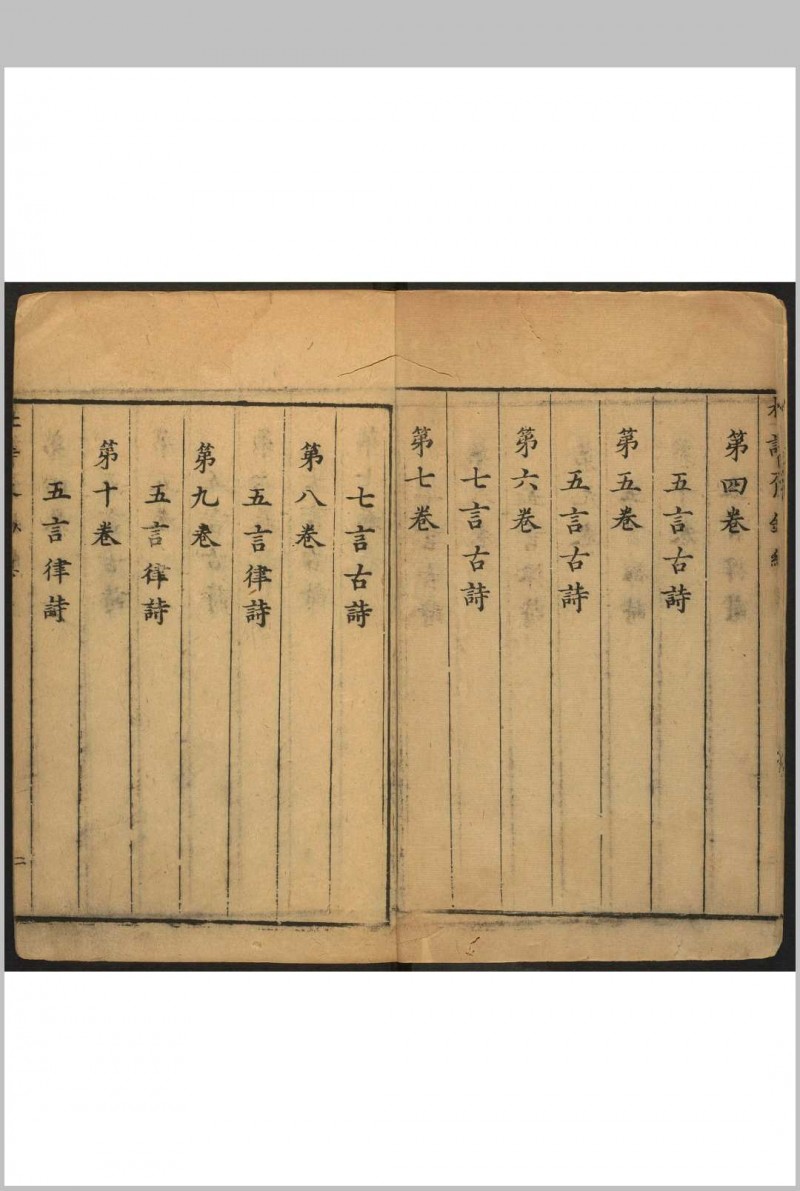 第四卷
五言古詩
第五卷
五言古詩
第六卷
七言古詩
第七卷
七言古詩
第八卷
五言律詩
第九卷
五言律詩
第十卷
五言律詩
二